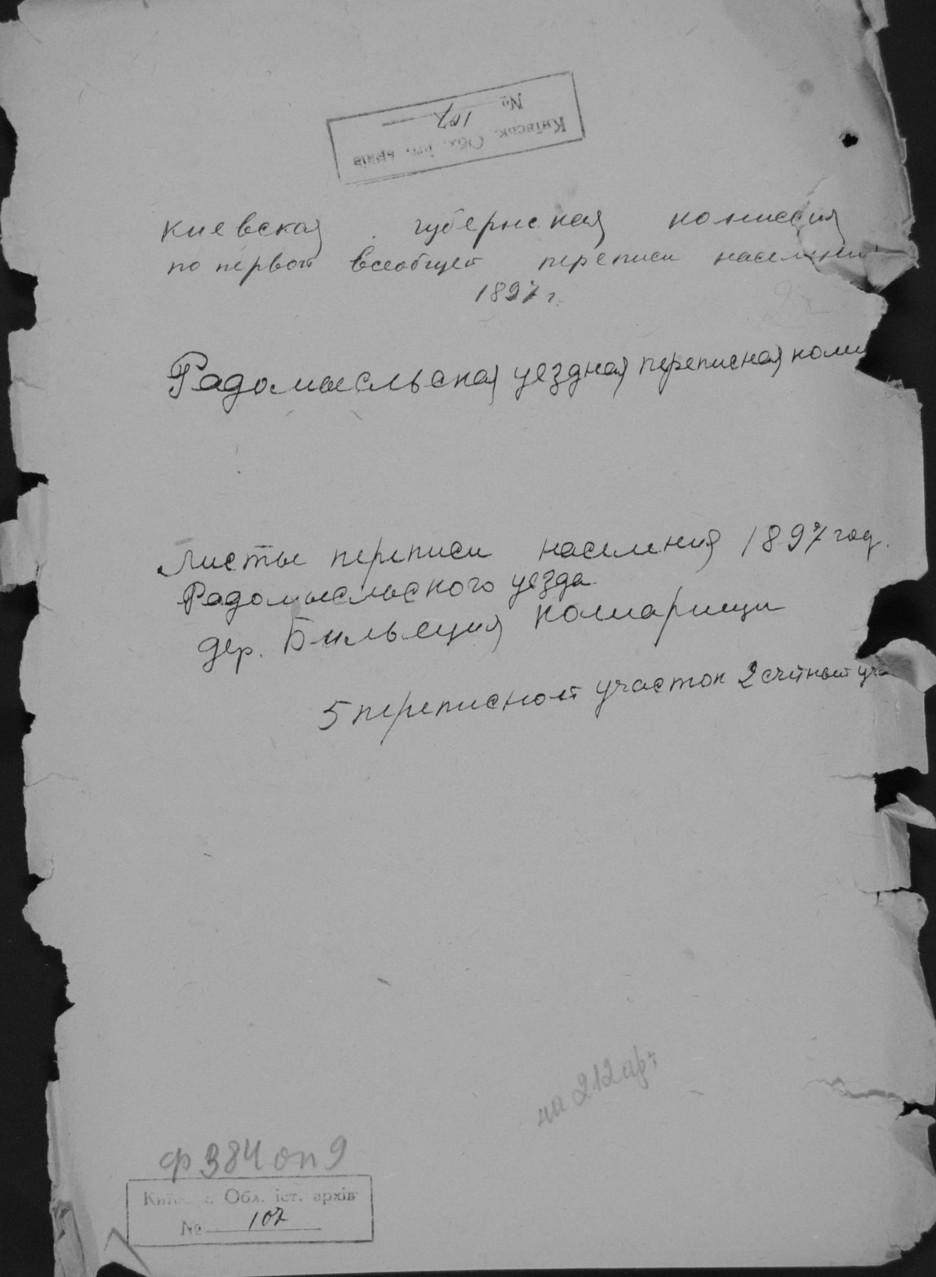 Київськ. Обл. іст. архів
№ 107
киевская губернская комиссия
по первой всеобщей переписи населени
1897 г.
Радомысльская уездная переписная коми
Листы переписи населения 1897 год.
Радомысльского уезда.
дер.
5 переписной участок 2 счетный уча
на 212 арк
ф 384 оп 9
Киї Обл. іст. архів
№ 107